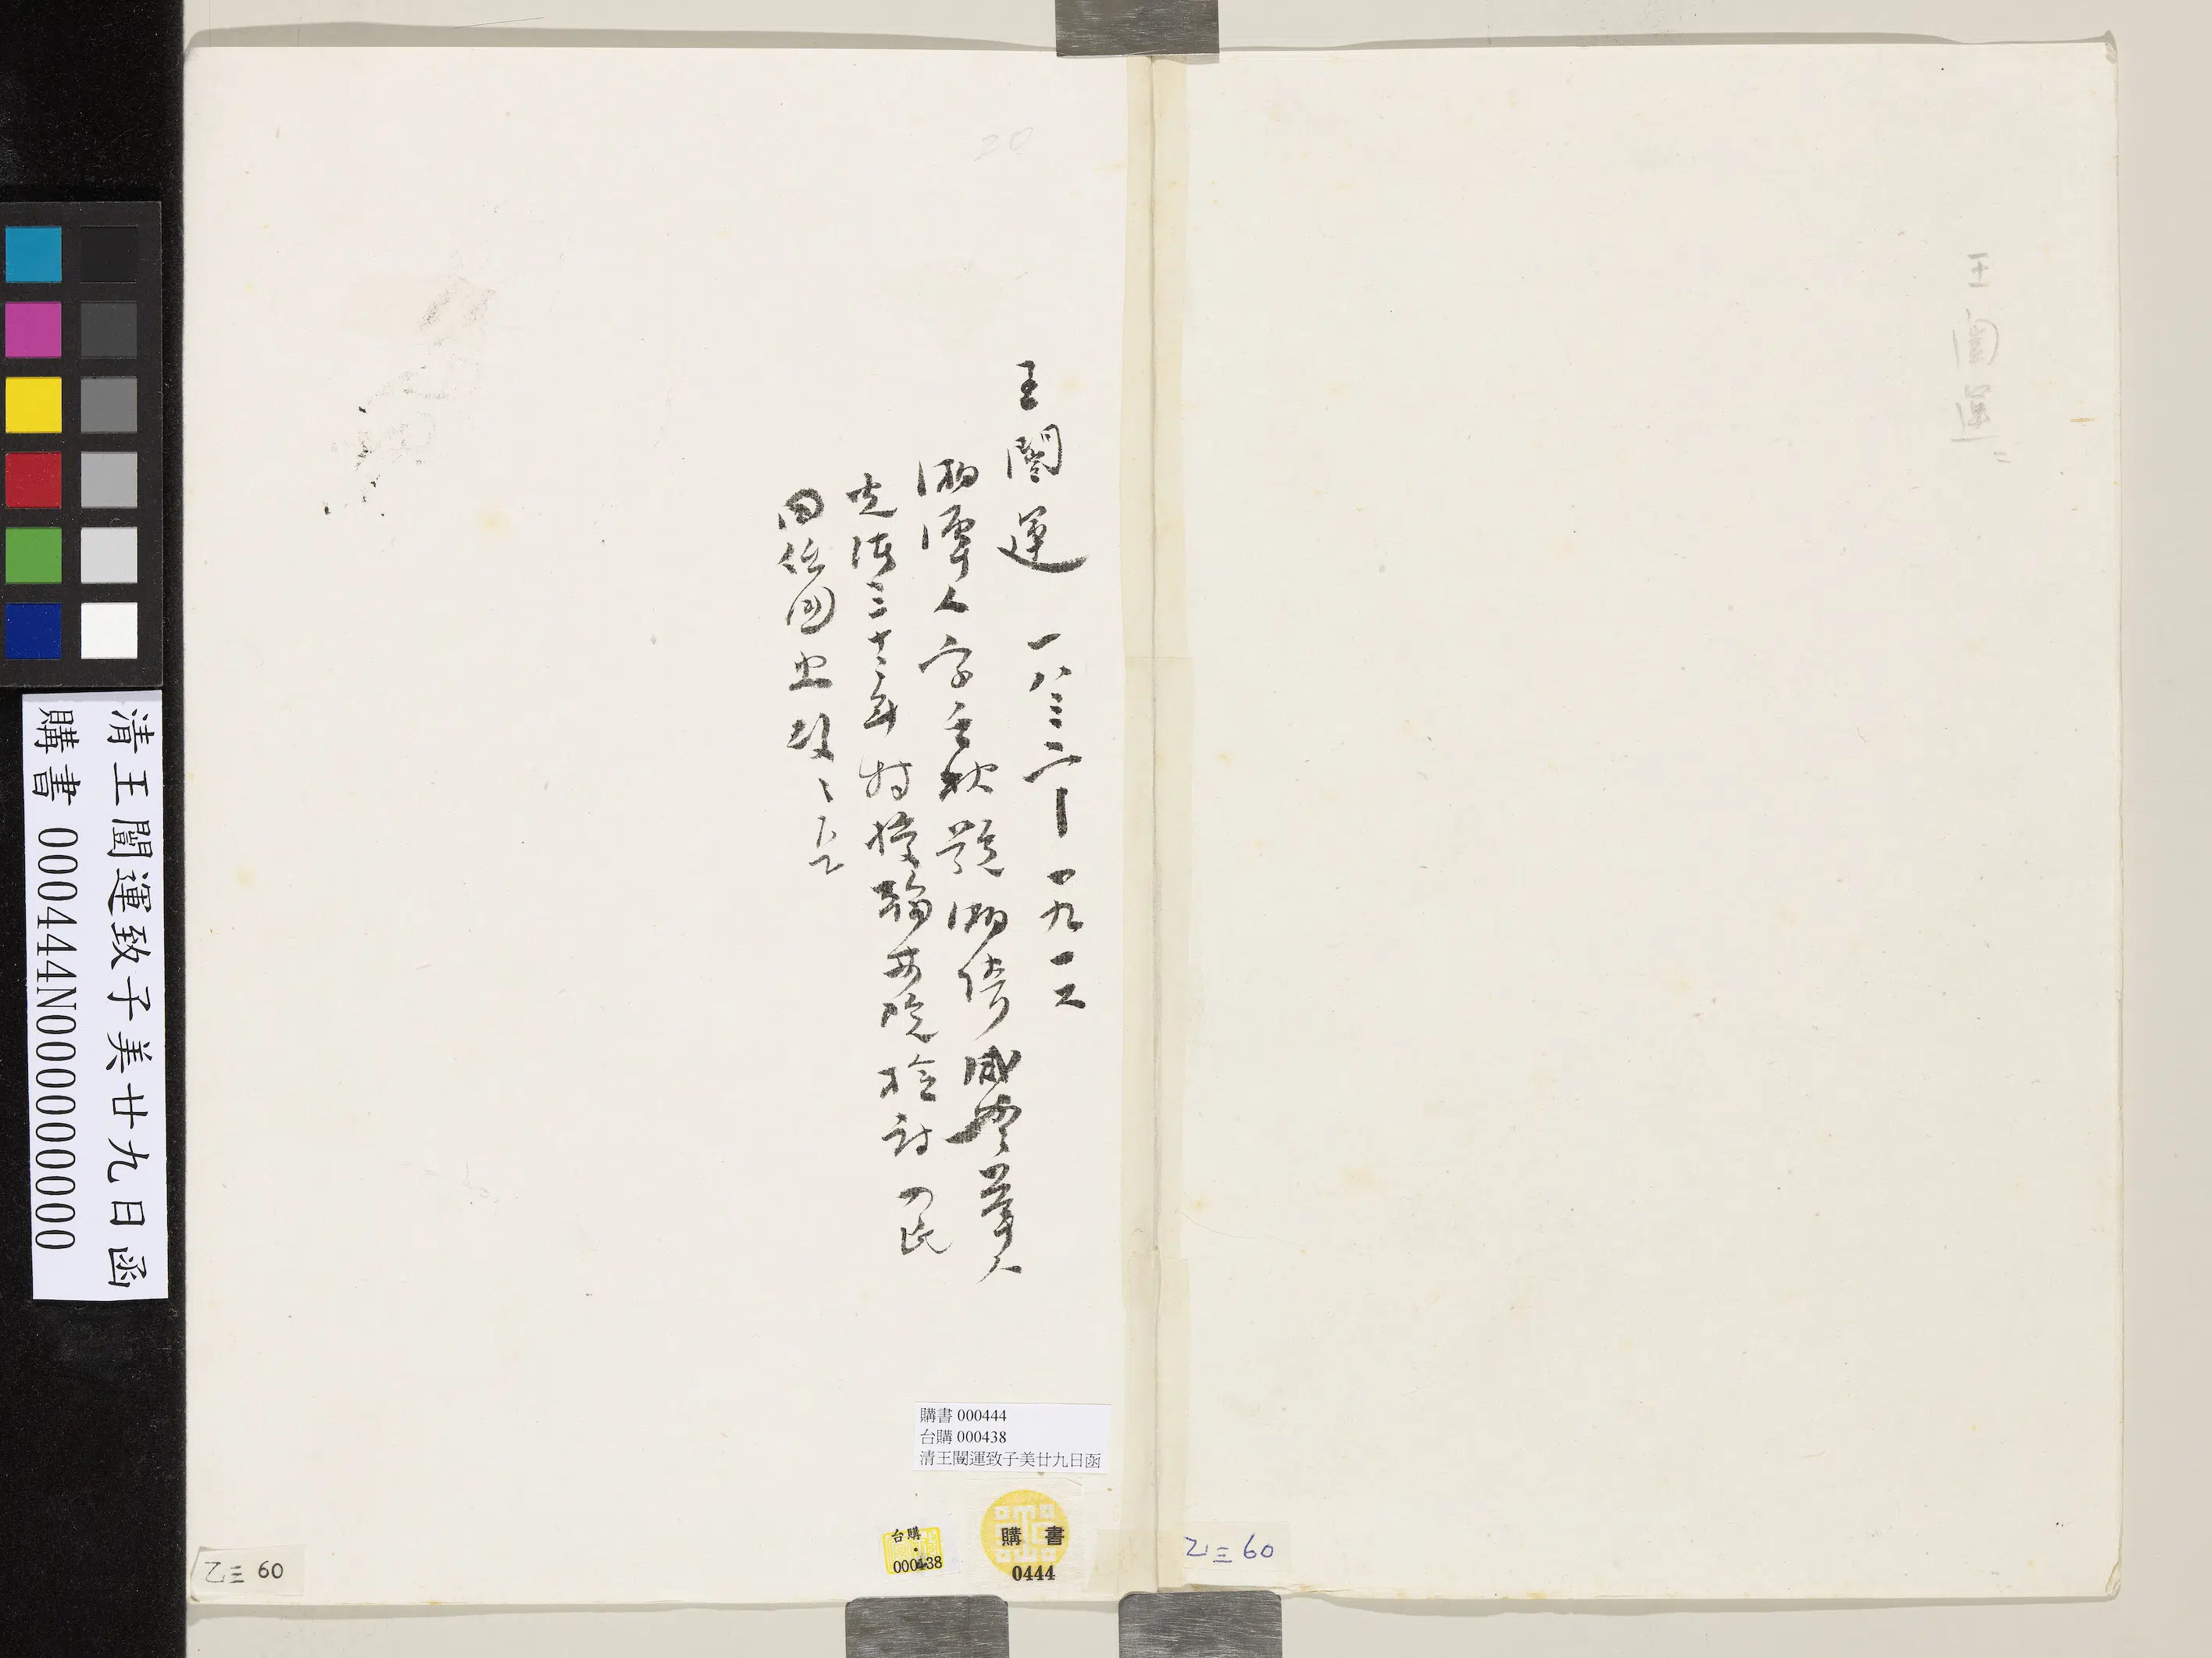 王闓運
乙三 60
20
王闓運 一八三二—一九一六
湘潭人字壬秋號湘綺咸豐舉人
光緒三十二年特授翰林院檢討入民
國任國史館〻長
購書 000444
台購 000438
清王闓運致子美廿九日函
購書
0444
台購
000438
乙三 60
清王闓運致子美廿九日函
購書 000444N000000000